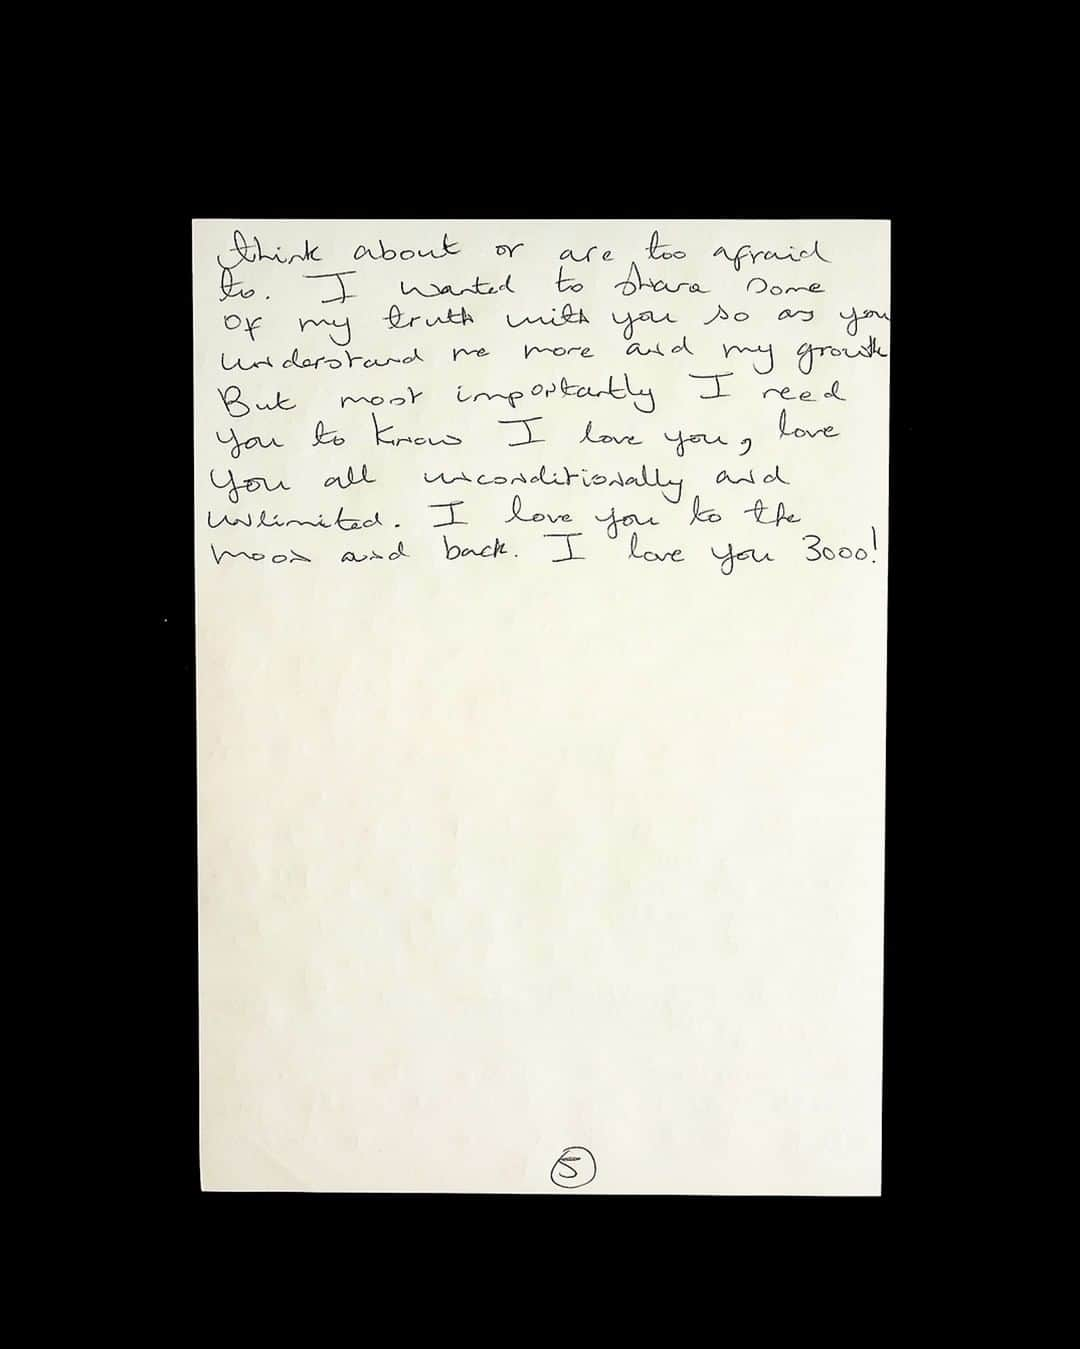 think about or are too afraid
to. I wanted to share some
of my truth with you so as you
understand me more and my growth
But most importantly I need
you to know I love you, love
you all unconditionally and
unlimited. I love you to the
moon and back. I love you 3000!
5